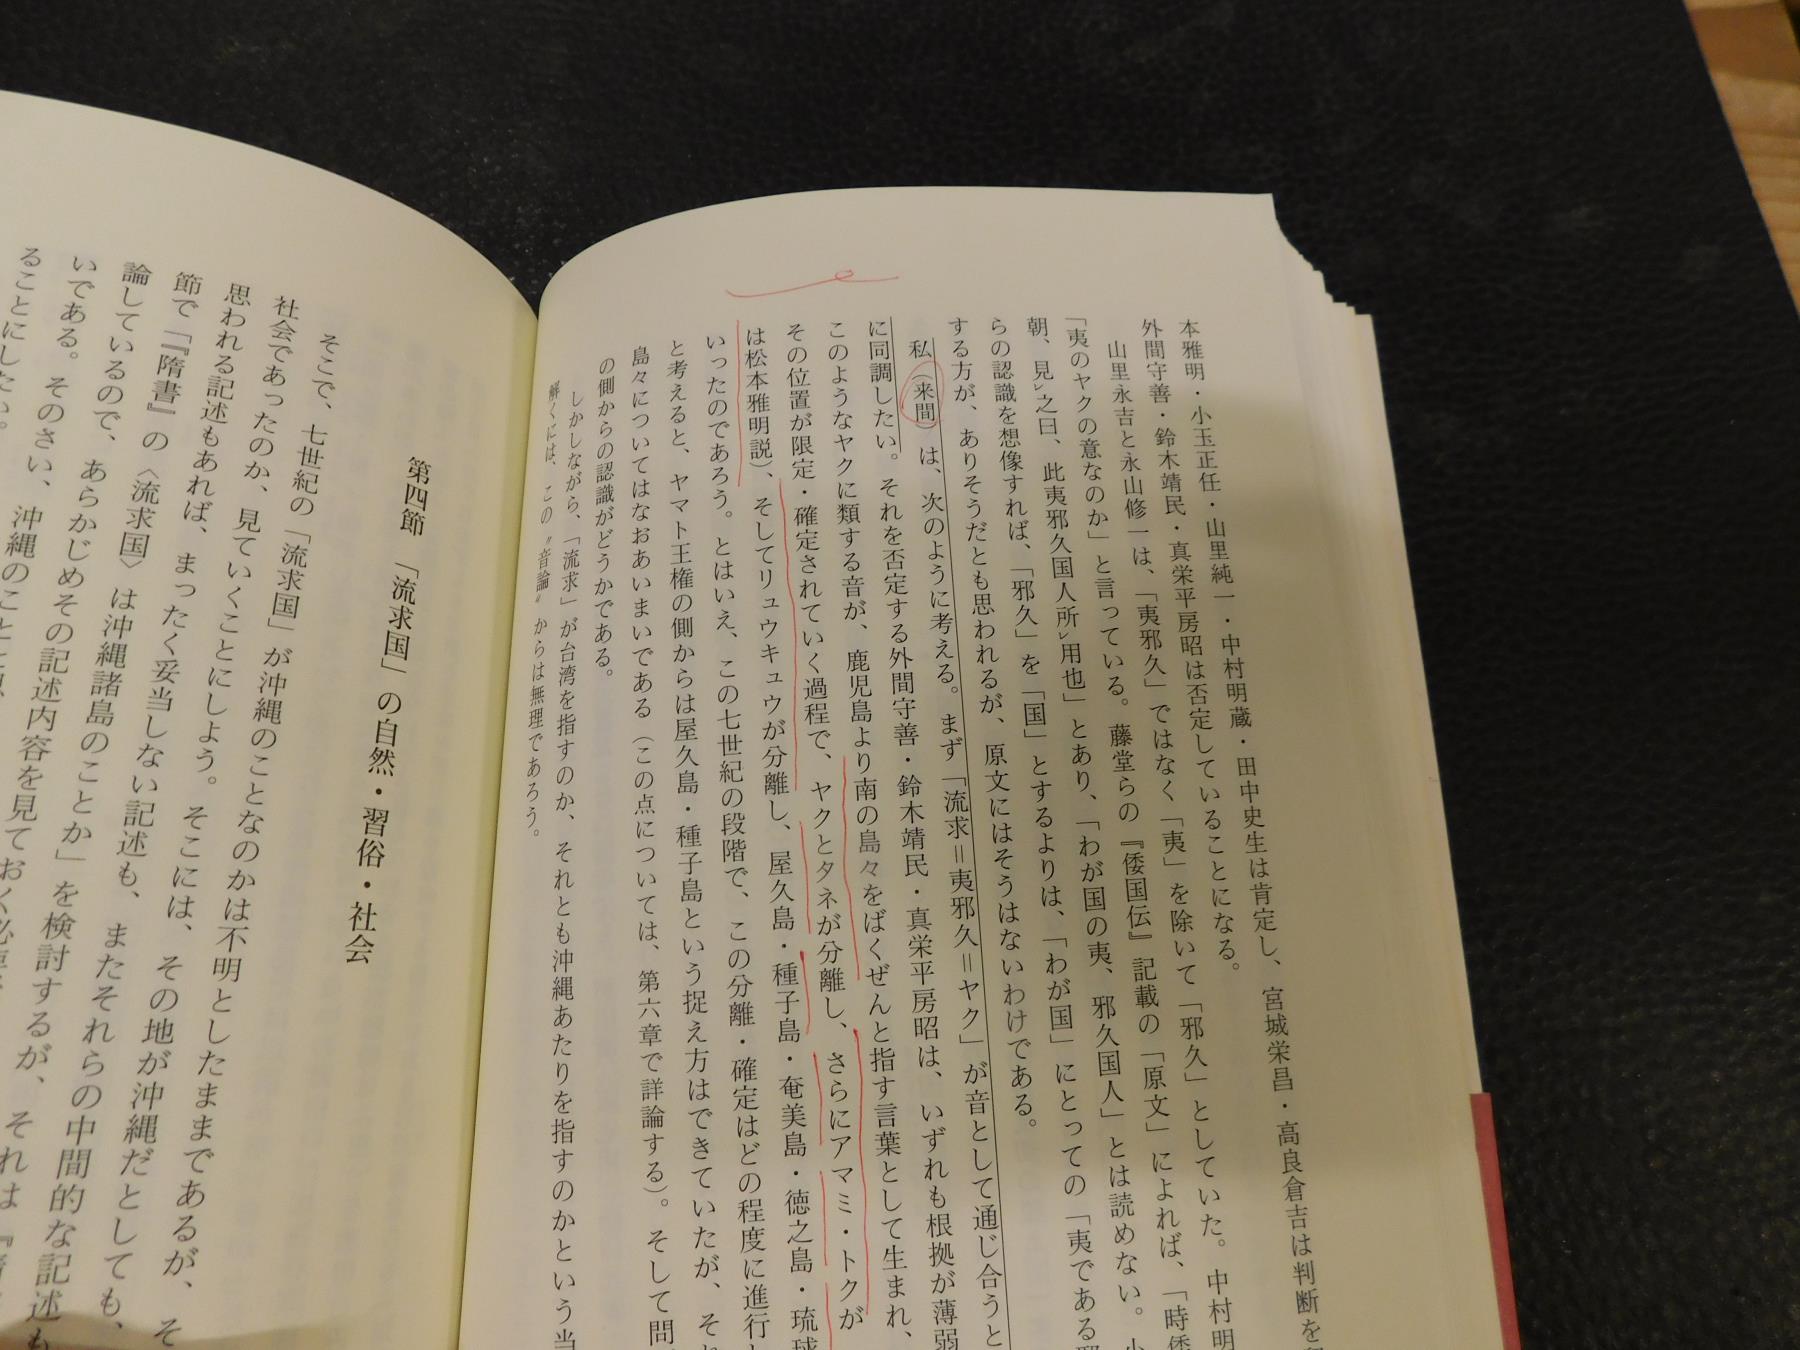 本雅明・小玉正任・山里純一・中村明蔵・田中史生は肯定し、宮城栄昌・高良倉吉は判断を
外間守善・鈴木靖民・真栄平房昭は否定していることになる。
山里永吉と永山修一は、「夷邪久」ではなく「夷」を除いて「邪久」としていた。中村明
「夷のヤクの意なのか」と言っている。藤堂らの『倭国伝』記載の「原文」によれば、「時倭
朝、見レ之曰、此夷邪久国人所レ用也」とあり、「わが国の夷、邪久国人」とは読めない。小
らの認識を想像すれば、「邪久」を「国」とするよりは、「わが国」にとっての「夷である邪
する方が、ありそうだとも思われるが、原文にはそうはないわけである。
私（来間）は、次のように考える。まず「流求＝夷邪久＝ヤク」が音として通じ合うと
に同調したい。それを否定する外間守善・鈴木靖民・真栄平房昭は、いずれも根拠が薄弱
このようなヤクに類する音が、鹿児島より南の島々をばくぜんと指す言葉として生まれ、
その位置が限定・確定されていく過程で、ヤクとタネが分離し、さらにアマミ・トクが
は松本雅明説）、そしてリュウキュウが分離し、屋久島・種子島・奄美島・徳之島・琉球
いったのであろう。とはいえ、この七世紀の段階で、この分離・確定はどの程度に進行し
と考えると、ヤマト王権の側からは屋久島・種子島という捉え方はできていたが、それ
島々についてはなおあいまいである（この点については、第六章で詳論する）。そして問
の側からの認識がどうかである。
しかしながら、「流求」が台湾を指すのか、それとも沖縄あたりを指すのかという当
解くには、この〝音論〟からは無理であろう。
第四節　「流求国」の自然・習俗・社会
そこで、七世紀の「流求国」が沖縄のことなのかは不明としたままであるが、そ
社会であったのか、見ていくことにしよう。そこには、その地が沖縄だとしても、
思われる記述もあれば、まったく妥当しない記述も、またそれらの中間的な記述も
節で「『隋書』の〈流求国〉は沖縄諸島のことか」を検討するが、それは『隋
論しているので、あらかじめその記述内容を見ておく必要
いである。そのさい、沖縄のことと
ることにしたい。